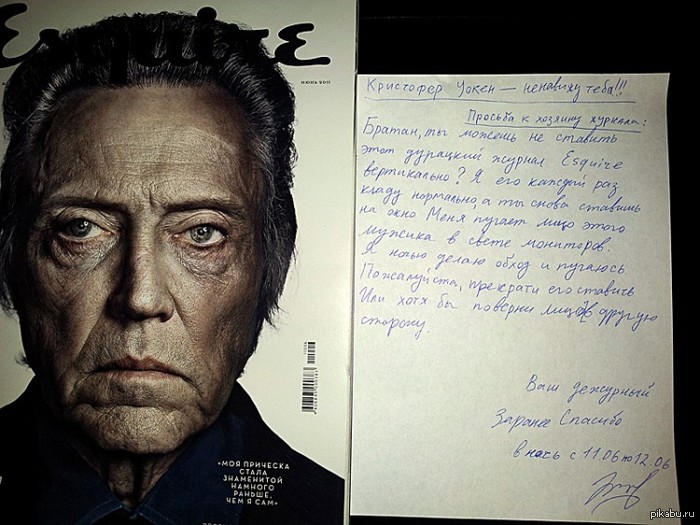 Esquire
ИЮНЬ 2011
«МОЯ ПРИЧЕСКА
СТАЛА
ЗНАМЕНИТОЙ
НАМНОГО
РАНЬШЕ,
ЧЕМ Я САМ»
Кристофер Уокен — ненавижу тебя!!!
Просьба к хозяину журнала:
Братан, ты можешь не ставить
этот дурацкий журнал Esquire
вертикально? Я его каждый раз
кладу нормально, а ты снова ставишь
на окно Меня пугает лицо этого
мужика в свете мониторов.
Я ночью делаю обход и пугаюсь
Пожалуйста, прекрати его ставить
Или хотя бы поверни лицом в другую
сторону.
Ваш дежурный
Заранее Спасибо
в ночь с 11.06 по 12.06
pikabu.ru